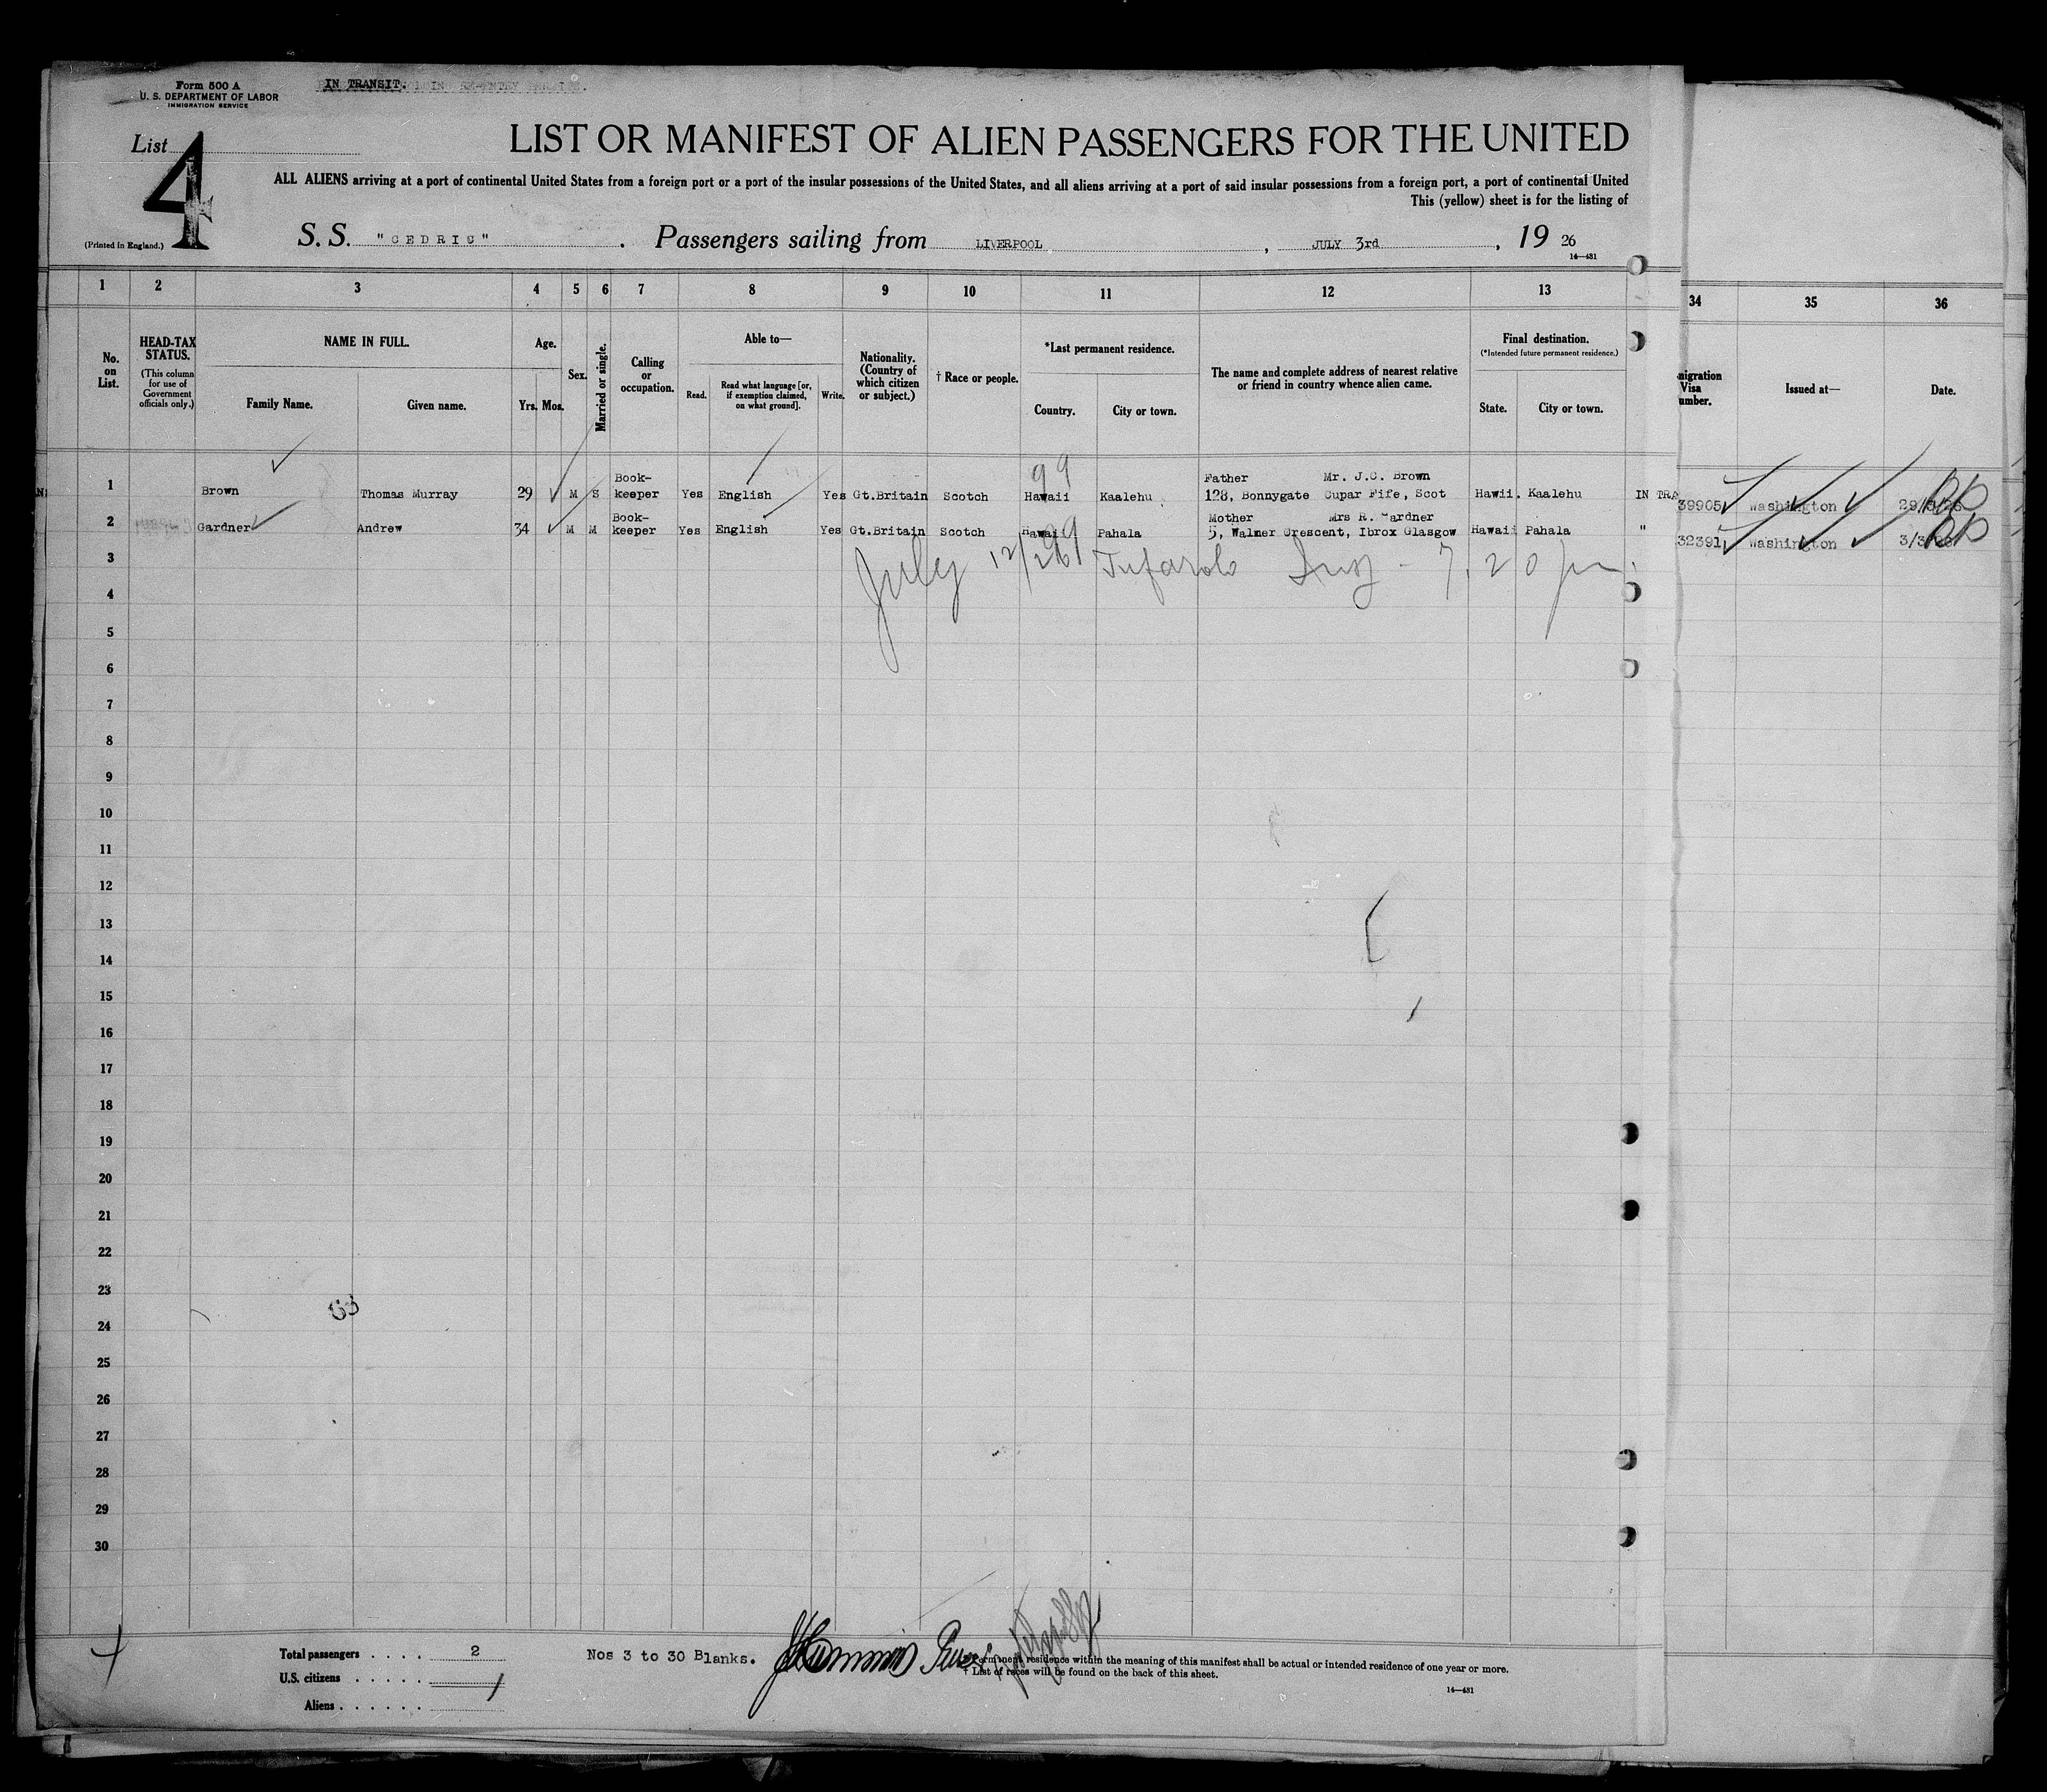 Form 500 A
U. S. DEPARTMENT OF LABOR
IMMIGRATION SERVICE
IN TRANSIT.
List 4
(Printed in England.)
LIST OR MANIFEST OF ALIEN PASSENGERS FOR THE UNITED
ALL ALIENS arriving at a port of continental United States from a foreign port or a port of the insular possessions of the United States, and all aliens arriving at a port of said insular possessions from a foreign port, a port of continental United
This (yellow) sheet is for the listing of
S. S. "CEDRIC" . Passengers sailing from LIVERPOOL , JULY 3rd , 19 26
14—431
1 2 3 4 5 6 7 8 9 10 11 12 13 34 35 36
No. on List.
HEAD-TAX STATUS.
(This column for use of Government officials only.)
NAME IN FULL.
Family Name. Given name.
Age.
Yrs. Mos.
Sex.
Married or single.
Calling or occupation.
Able to—
Read. Read what language [or, if exemption claimed, on what ground]. Write.
Nationality. (Country of which citizen or subject.)
† Race or people.
*Last permanent residence.
Country. City or town.
The name and complete address of nearest relative or friend in country whence alien came.
Final destination.
(*Intended future permanent residence.)
State. City or town.
nigration Visa umber.
Issued at—
Date.
99
1 Brown Thomas Murray 29 M S Book-keeper Yes English Yes Gt.Britain Scotch Hawaii Kaalehu Father Mr. J.C. Brown 128, Bonnygate Cupar Fife, Scot Hawii. Kaalehu IN TRA 39905 Washington
2 Gardner Andrew 34 M M Book-keeper Yes English Yes Gt.Britain Scotch Hawaii Pahala Mother Mrs R. Gardner 5, Walmer Crescent, Ibrox Glasgow Hawaii Pahala " 32391 Washington
99
July 12/26 Tufarolo Insp - 7.20 pm.
3
4
5
6
7
8
9
10
11
12
13
14
15
16
17
18
19
20
21
22
23
24
25
26
27
28
29
30
63
Total passengers . . . . 2
U.S. citizens . . . . .
Aliens . . . . . .
Nos 3 to 30 Blanks.
permanent residence within the meaning of this manifest shall be actual or intended residence of one year or more.
† List of races will be found on the back of this sheet.
14—431